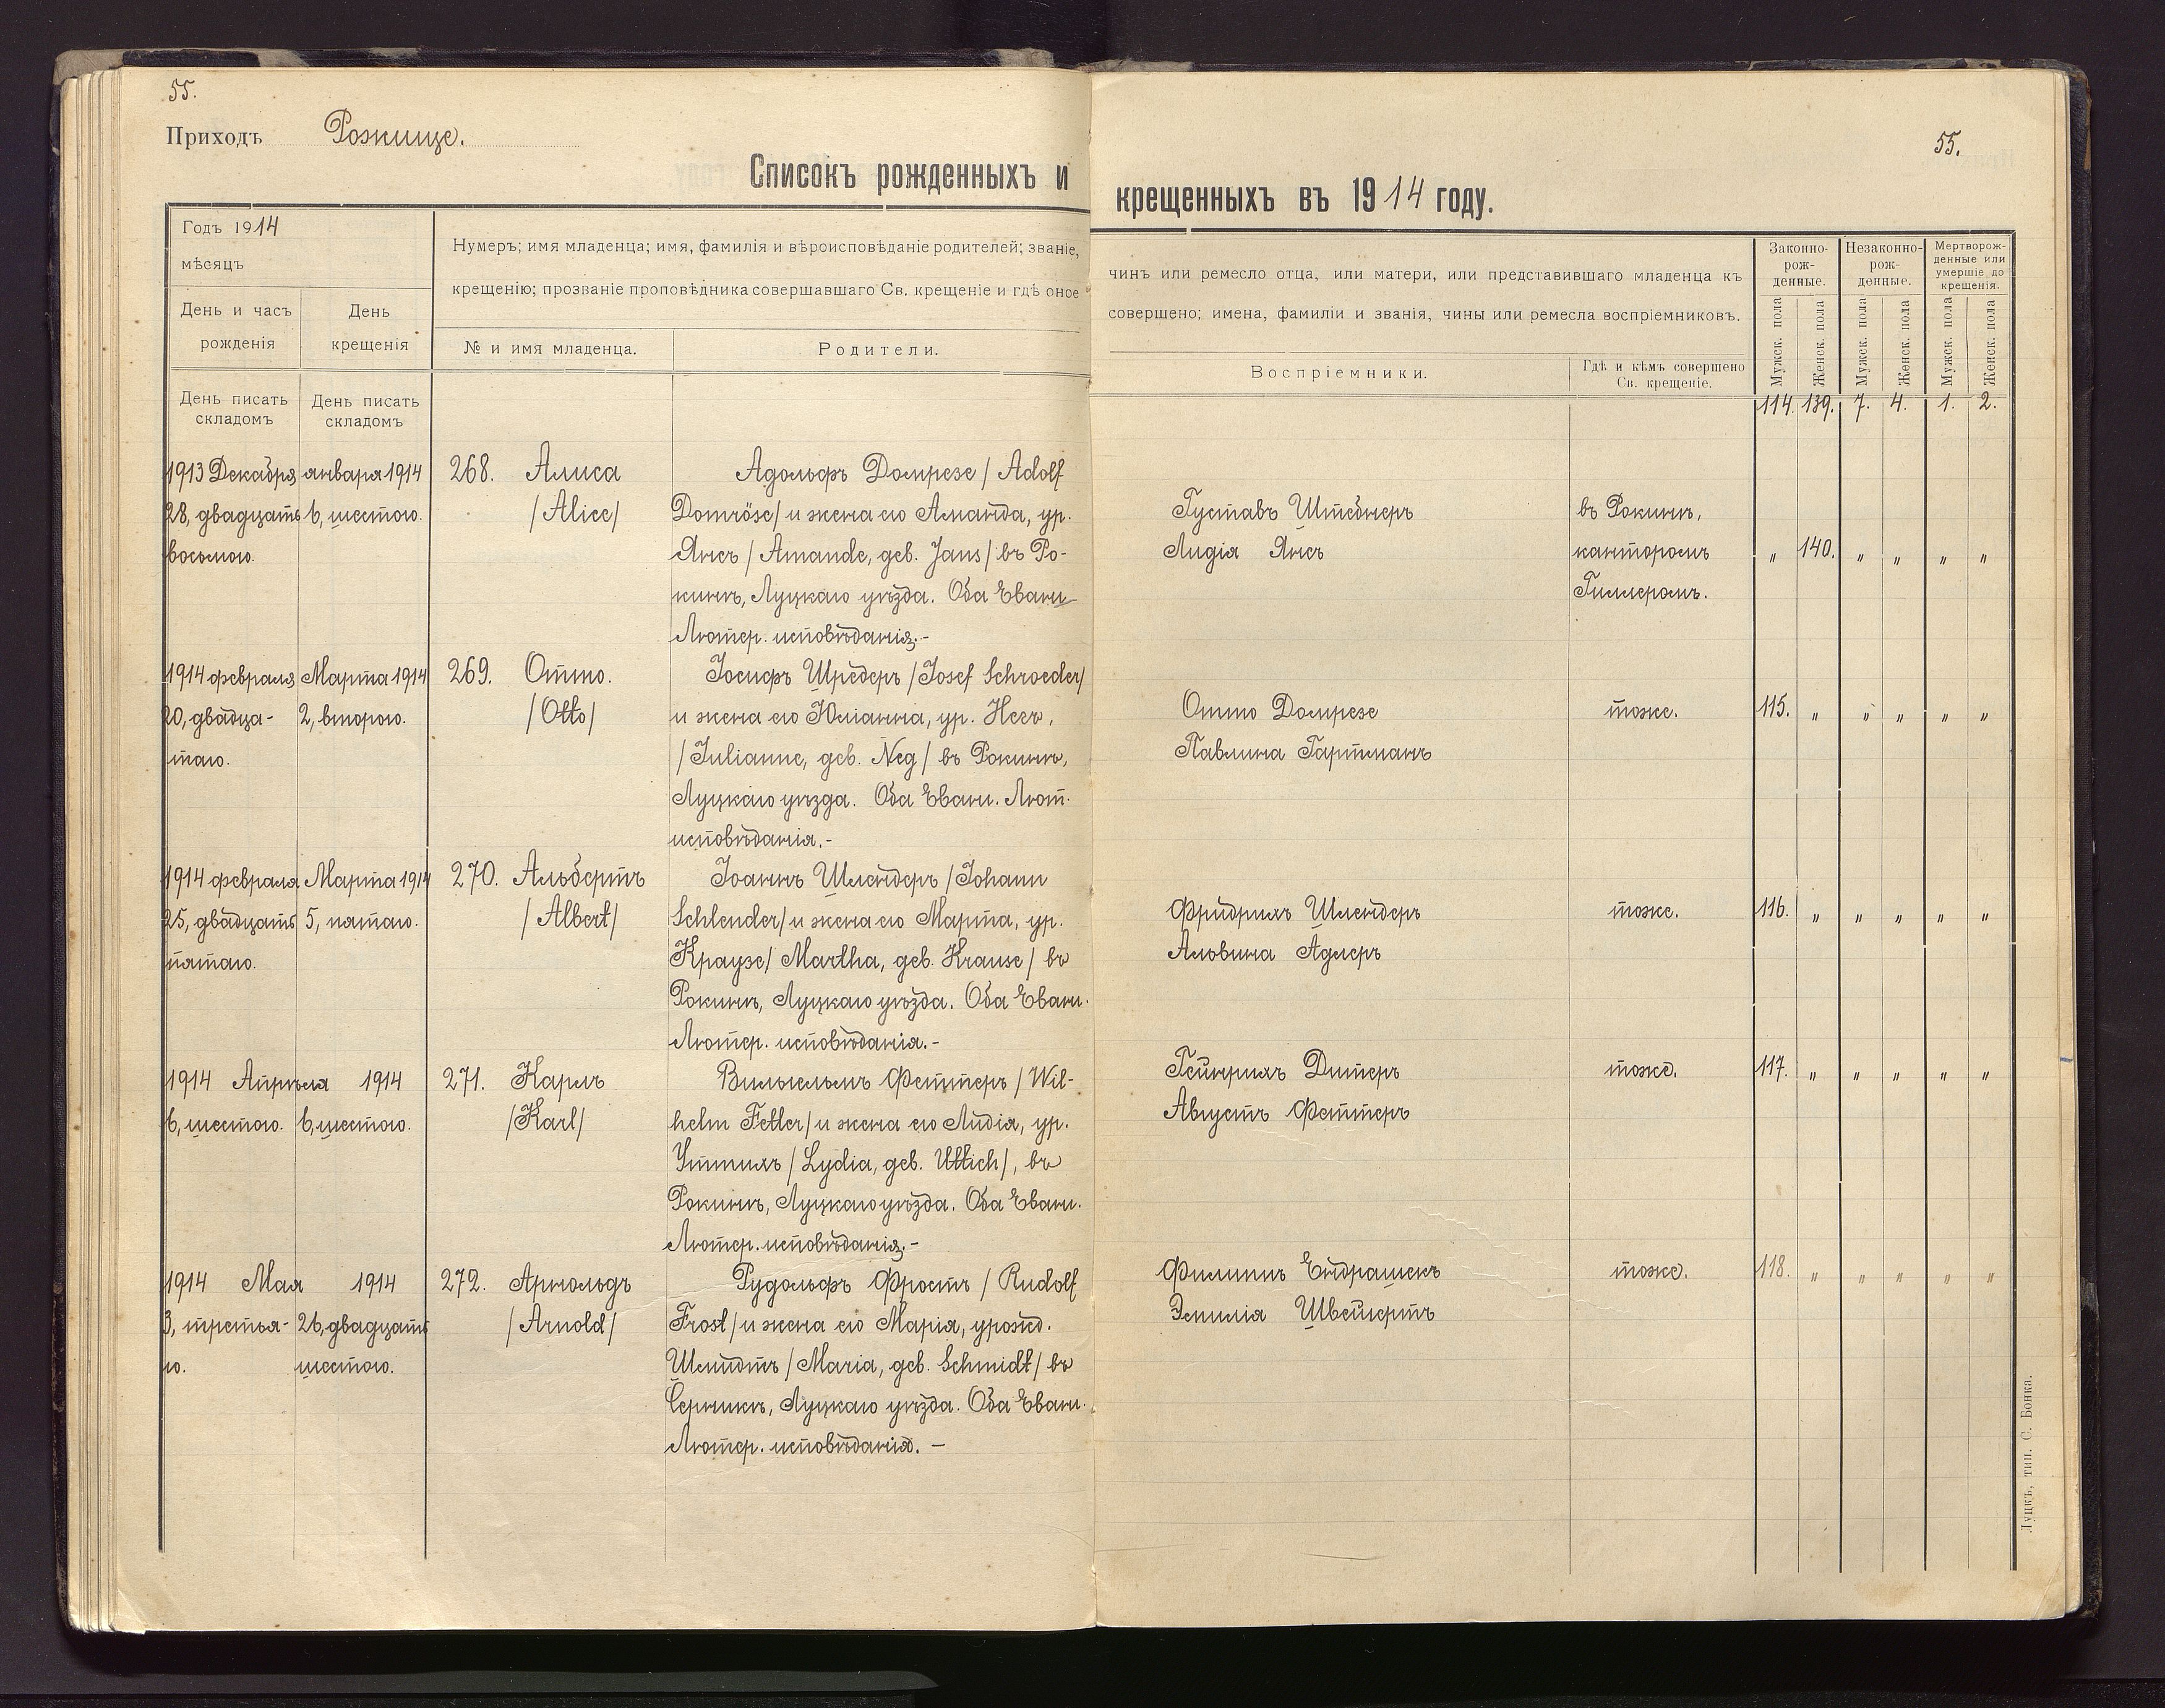 55.
Приходъ Рожище.
55.
Списокъ рожденныхъ и крещенныхъ въ 1914 году.
Годъ 1914
мѣсяцъ
День и часъ рожденія
День крещенія
День писать складомъ
День писать складомъ
Нумеръ; имя младенца; имя, фамилія и вѣроисповѣданіе родителей; званіе,
крещенію; прозваніе проповѣдника совершавшаго Св. крещеніе и гдѣ оное
№ и имя младенца.
Родители.
чинъ или ремесло отца, или матери, или представившаго младенца къ
совершено; имена, фамиліи и званія, чины или ремесла воспріемниковъ.
Воспріемники.
Гдѣ и кѣмъ совершено
Св. крещеніе.
Законно-
рож-
денные.
Незаконно-
рож-
денные.
Мертворож-
денные или
умершіе до
крещенія.
Мужск. пола
Женск. пола
Мужск. пола
Женск. пола
Мужск. пола
Женск. пола
114. 139. 7. 4. 1. 2.
1913 Декабря
28, двадцать
восьмого.
января 1914
6, шестого.
268. Алиса
/Alice/
Адольфъ Домрезе / Adolf
Domröse/ и жена его Аманда, ур.
Янсъ / Amande, geb. Jans / въ Ро-
кинѣ, Луцкаго уѣзда. Оба Еванг.
Лютер. исповѣданія.-
Густавъ Штебнеръ
Лидія Янсъ
въ Рокинѣ,
канторомъ
Гиллеромъ.
" 140. " " " "
1914 февраля
20, двадца-
таго.
Марта 1914
2, второго.
269. Отто.
/Otto/
Іосифъ Шредеръ /Josef Schroeder/
и жена его Юліанна, ур. Негъ,
/Julianne, geb. Neg/ въ Рокинѣ,
Луцкаго уѣзда. Оба Еванг. Лют.
исповѣданія.-
Отто Домрезе
Павлина Гартманъ
тоже.
115. " " " " "
1914 февраля
25, двадцать
пятаго.
Марта 1914
5, пятаго.
270. Альбертъ
/Albert/
Іоаннъ Шлендеръ /Johann
Schlender/ и жена его Марта, ур.
Краузе/ Martha, geb. Krause / въ
Рокинѣ, Луцкаго уѣзда. Оба Еванг.
Лютер. исповѣданія.-
Фридрихъ Шлендеръ
Альвина Адлеръ
тоже.
116. " " " " "
1914 Апрѣля 1914
6, шестого.
6, шестого.
271. Карлъ
/Karl/
Вильгельмъ Феттеръ / Wil-
helm Fetter/ и жена его Лидія, ур.
Уттихъ / Lydia, geb. Uttich/, въ
Рокинѣ, Луцкаго уѣзда. Оба Еванг.
Лютер. исповѣданія.-
Гейнрихъ Дитеръ
Августъ Феттеръ
тоже.
117. " " " " "
1914 Мая 1914
3, третья-
го.
26, двадцать
шестого.
272. Арнольдъ
/Arnold/
Рудольфъ Фростъ / Rudolf
Frost/ и жена его Марія, урожд.
Шмидтъ /Maria, geb. Schmidt/ въ
Серникѣ, Луцкаго уѣзда. Оба Еванг.
Лютер. исповѣданія. -
Филиппъ Ендрашекъ
Эмилія Швейгертъ
тоже.
118. " " " " "
Луцкъ, тип. С. Бонка.